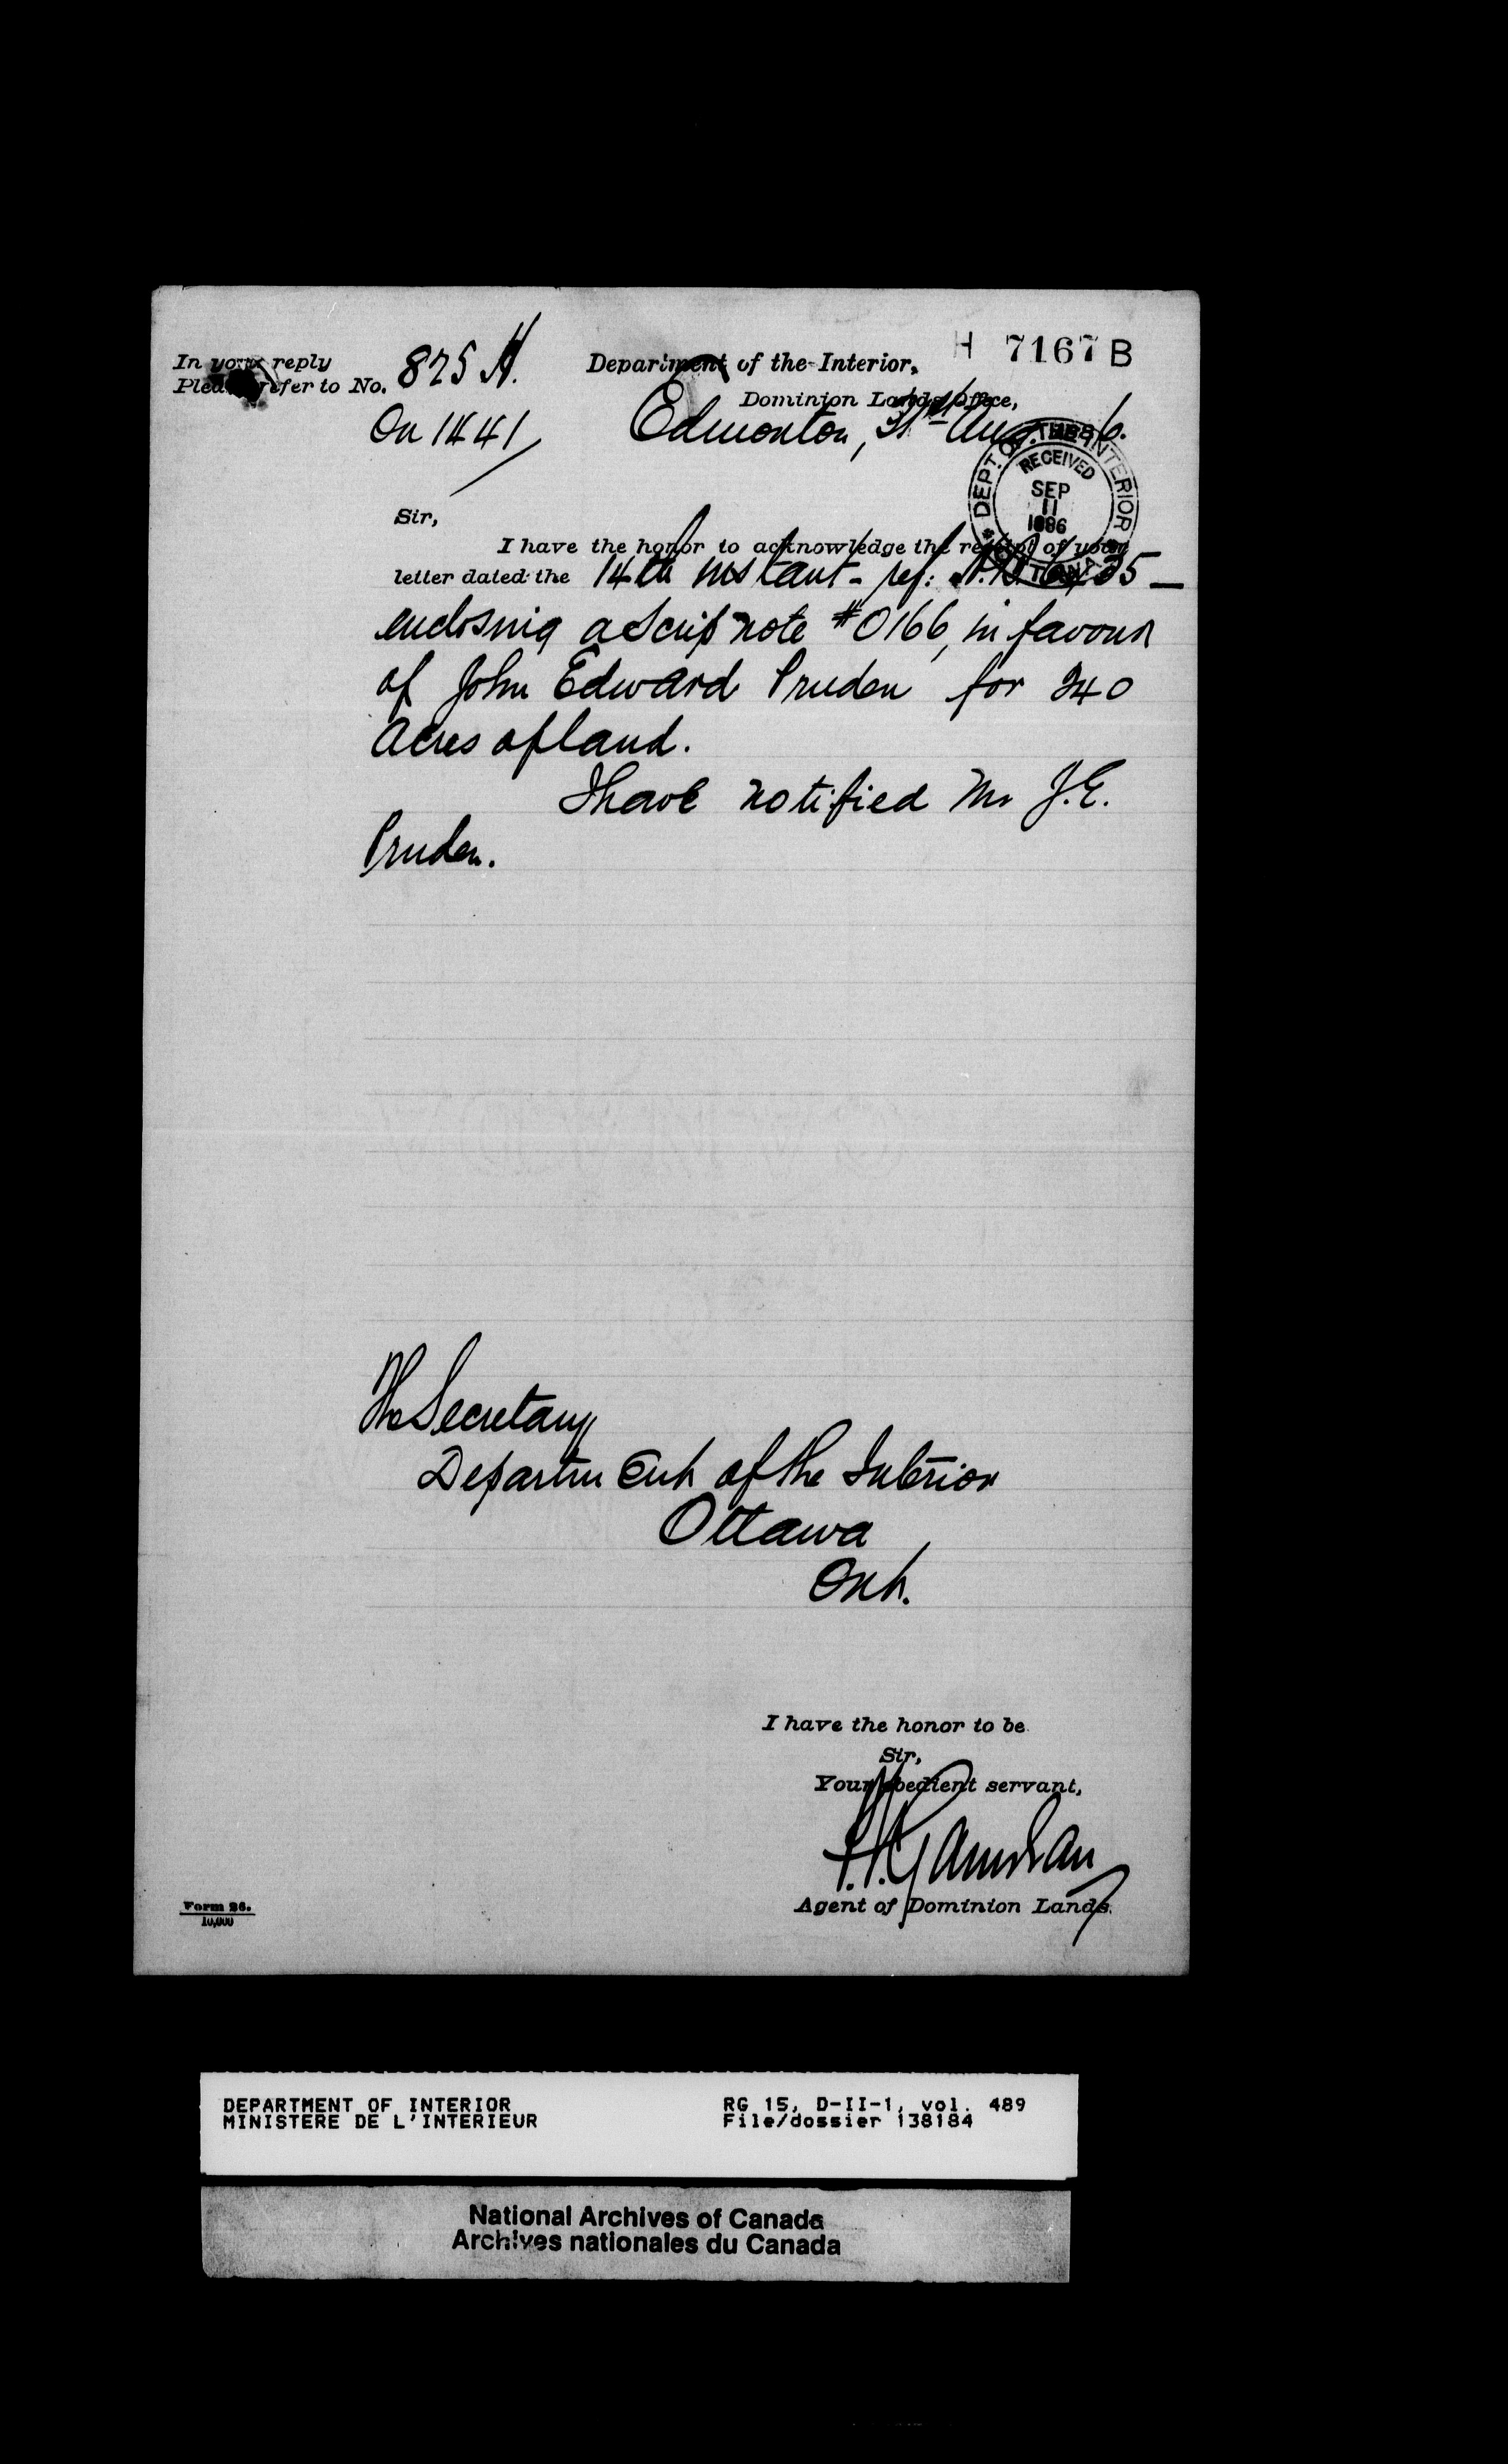 In your reply
Please refer to No. 825 H.
On 1441
Department of the Interior,
H 7167 B
Dominion Lands Office,
Edmonton, 31st Aug. 1886.
DEPT. OF THE INTERIOR
RECEIVED
SEP
11
1886
OTTAWA
Sir,
I have the honor to acknowledge the receipt of your
letter dated the 14th instant - ref:
enclosing a Scrip note #0166, in favour
of John Edward Pruden for 240
Acres of land.
I have notified Mr J.E.
Pruden.
The Secretary
Department of the Interior
Ottawa
Ont.
I have the honor to be
Sir,
Your obedient servant,
Agent of Dominion Lands.
Form 26.
10,000
DEPARTMENT OF INTERIOR
MINISTERE DE L'INTERIEUR
RG 15, D-II-1, vol. 489
File/dossier 138184
National Archives of Canada
Archives nationales du Canada